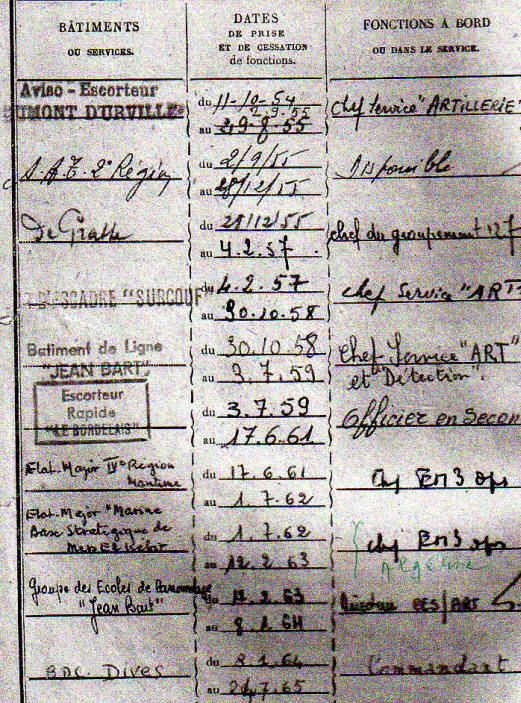 BÂTIMENTS
OU SERVICES.
DATES
DE PRISE
ET DE CESSATION
de fonctions.
FONCTIONS A BORD
OU DANS LE SERVICE.
Aviso - Escorteur
DUMONT D'URVILLE
du 11-10-54
au 29-8-55
2.9.55
Chef Service "ARTILLERIE"
2e Région
du 2/9/55
au 28/12/55
Disponible
De Grasse
du 28/12/55
au 4.2.57
chef du groupement 127
D'ESCADRE "SURCOUF"
du 4.2.57
au 30.10.58
chef Service "ART"
Batiment de Ligne
"JEAN BART"
du 30.10.58
au 3.7.59
Chef Service "ART"
et "Détection".
Escorteur
Rapide
"LE BORDELAIS"
du 3.7.59
au 17.6.61
Officier en Secon
Etat-Major IVe Région
Maritime
du 17.6.61
au 1.7.62
Chef EM3 ops
Etat-Major "Marine
Base Stratégique de
Mers El Kébir
du 1.7.62
au 12.2.63
Chef EM3 ops
Algérie
Groupe des Ecoles de
"Jean Bart"
du 12.2.63
au 8.1.64
BDC. Dives
du 8.1.64
au 7.65
Commandant